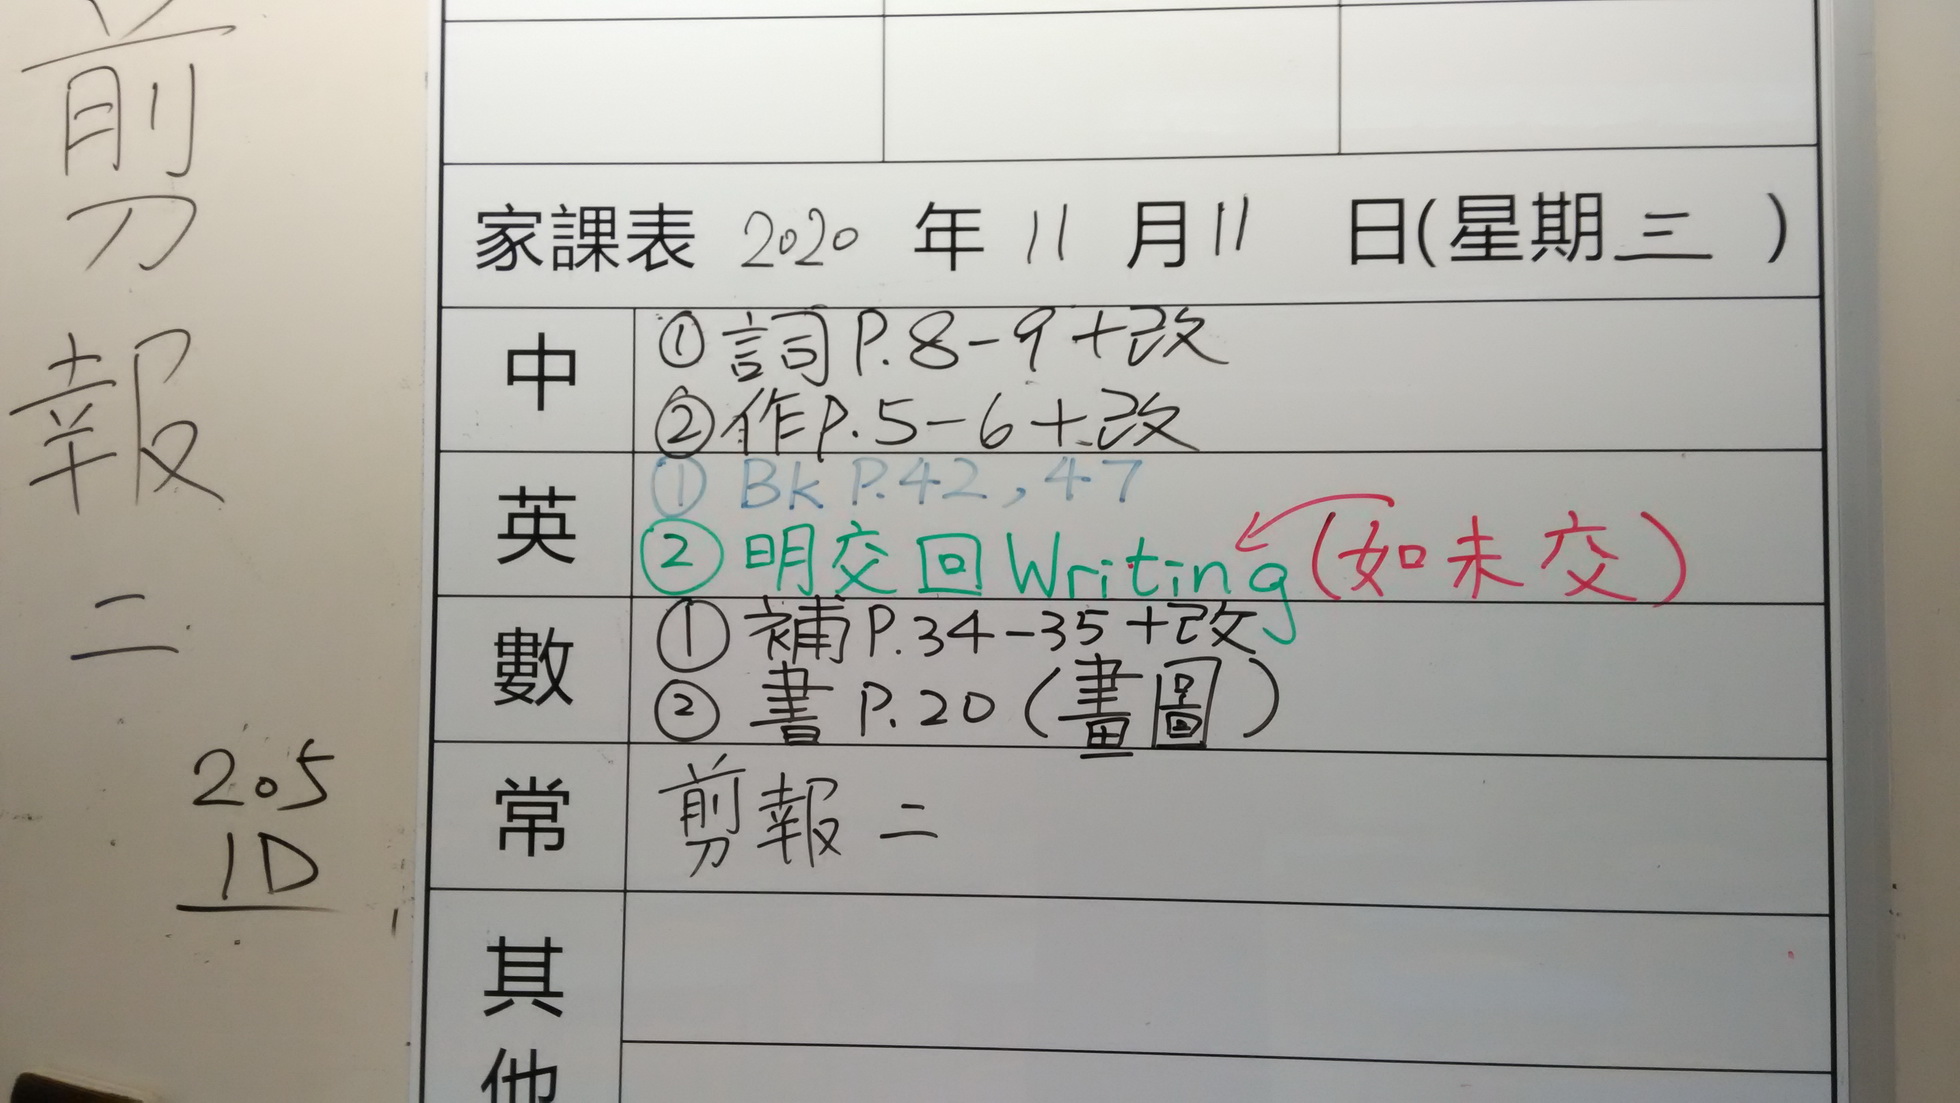 剪報二
205
1D
家課表 2020 年 11 月 11 日(星期三)
中
①詞P.8-9+改
②作P.5-6+改
英
① Bk P.42, 47
② 明交回Writing (如未交)
數
①補P.34-35+改
②書P.20(畫圖)
常
剪報二
其他